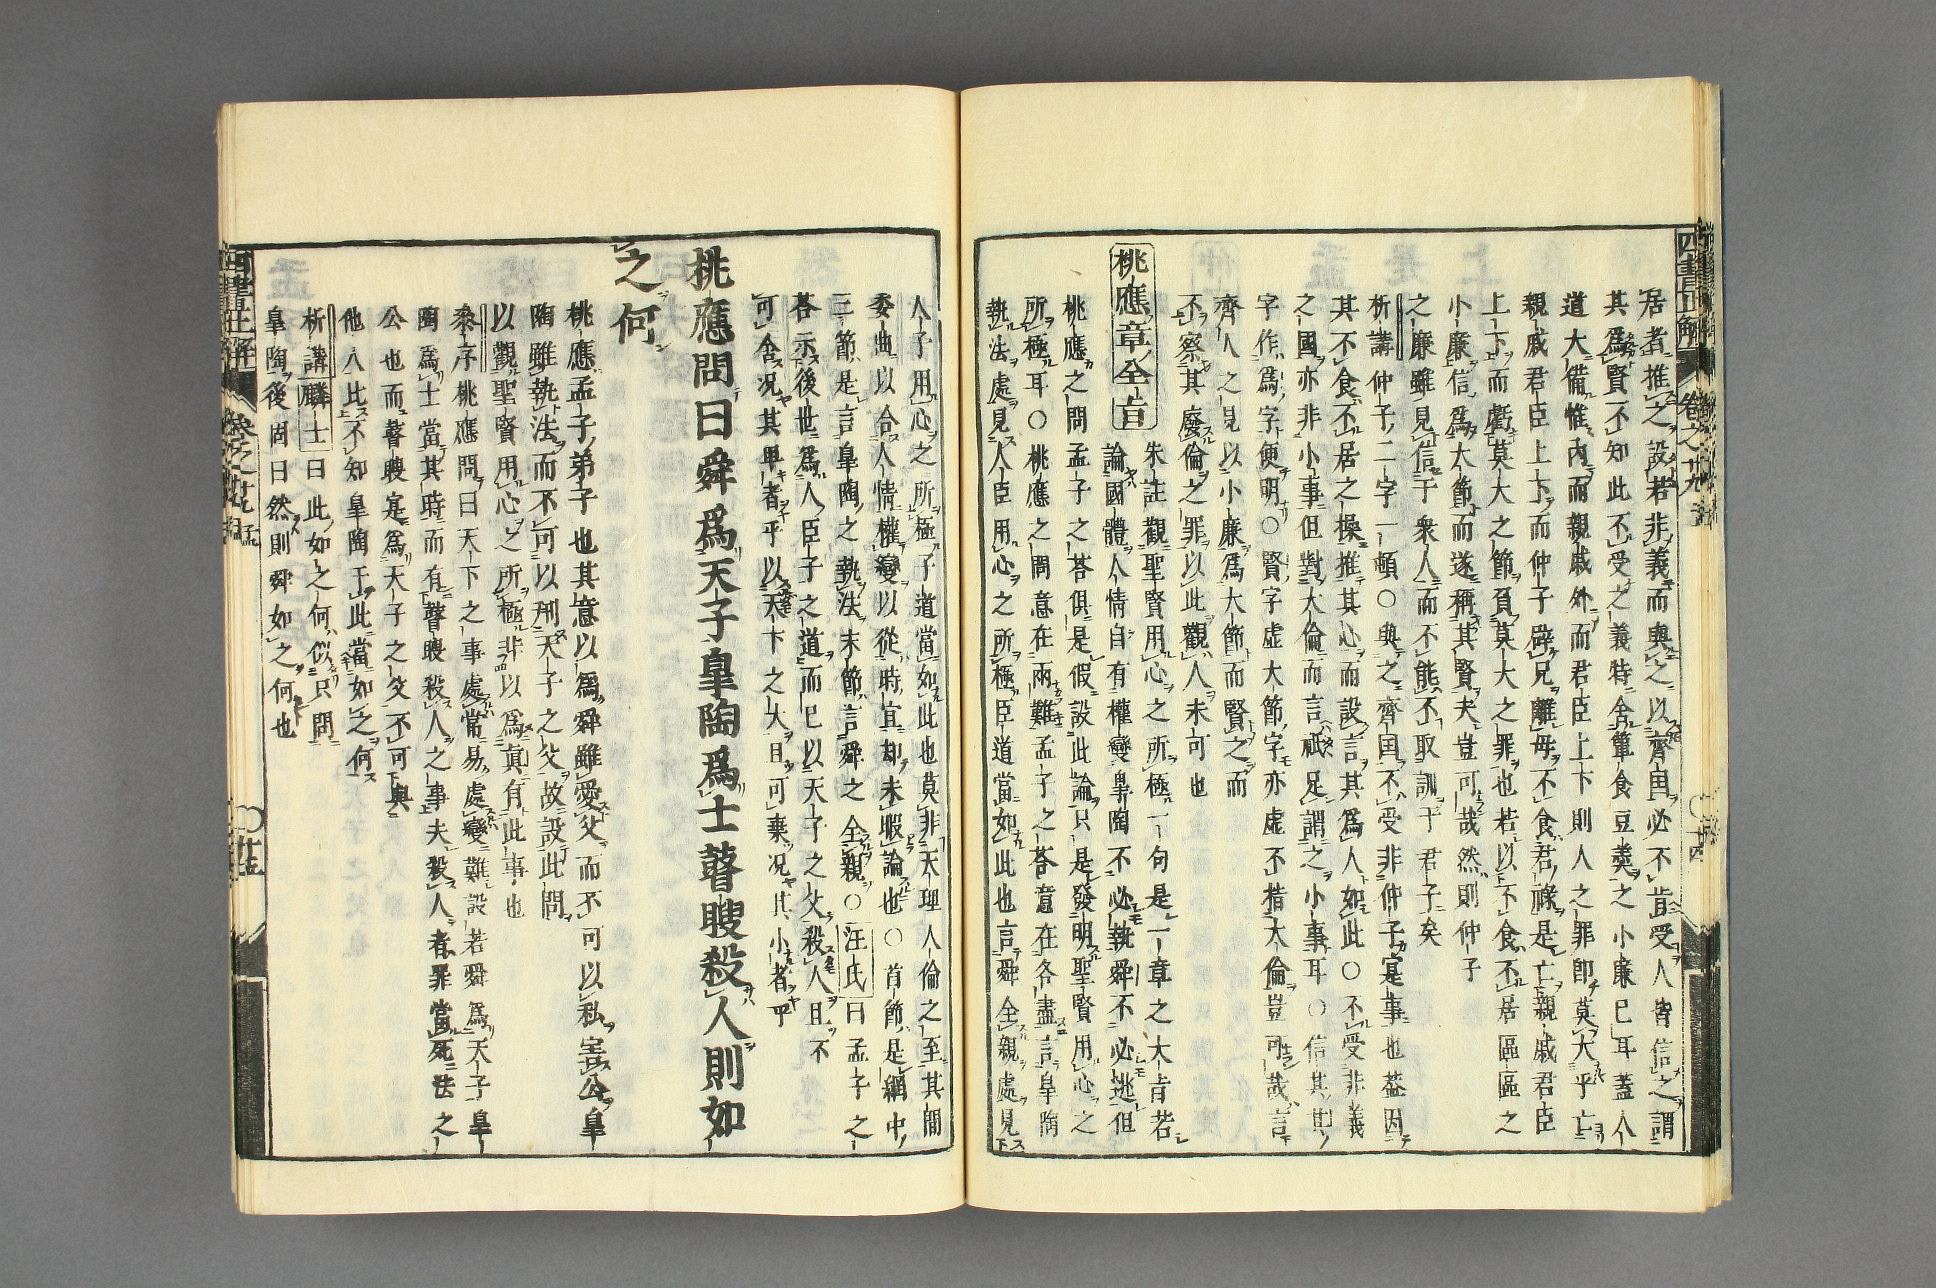 居者推之設若非義而與之以齊國必不肯受人皆信之謂
其爲賢不知此不受之義特舍簞食豆羹之小廉已耳蓋人
道大備惟內而親戚外而君臣上下則人之罪卽莫大乎亡
親戚君臣上下而仲子辟兄離母不食君祿是亡親戚君臣
上下而虧莫大之節負莫大之罪也若以不食不居區區之
小廉信爲大節而遂稱其賢夫豈可哉然則仲子
之廉雖見信于衆人而不能不取訓于君子矣
析講仲子二字一頓○與之齊国不受非仲子寔事也蓋因
其不食不居之操推其心而設言其爲人如此○不受非義
之國亦非小事但對大倫而言祇足謂之小事耳○信其
字作爲字便明○賢字虛大節字亦虛不揩大倫豈可哉言
齊人之見以小廉爲大節而賢之而
不察其廢倫之罪以此觀人未可也
桃應章全旨
朱註觀聖賢用心之所極一句是一章之大旨若
論國體人情自有權變皐陶不必執舜不必逃但
桃應之問孟子之荅俱是假設此論只是發明聖賢用心之
所極耳○桃應之問意在兩難孟子之荅意在各盡言皐陶
執法處見人臣用心之所極臣道當如此也言舜全親處見
人子用心之所極子道當如此也莫非天理人倫之至其間
委曲以合人情權變以從時宜却未暇論也○首節是綱中
三節是言皐陶之執法末節言舜之全親○汪氏曰孟子之
荅示後世爲人臣子之道而已以天子之父殺人且不
可舍况其卑者乎以天下之大且可棄况其小者乎
桃應問曰舜爲天子皐陶爲士瞽瞍殺人則如
之何
桃應孟子弟子也其意以爲舜雖愛父而不可以私害公皐
陶雖執法而不可以刑天子之父故設此問
以觀聖賢用心之所極非以爲眞有此事也
叅序桃應問曰天下之事處常易處變難設若舜爲天子皐
陶爲士當其時而有瞽瞍殺人之事夫殺人者罪當死法之
公也而瞽瞍寔爲天子之父不可與
他人比不知皐陶于此當如之何
析講麟士曰此如之何似只問
皐陶後問曰然則舜如之何也
四書正解
卷之十九